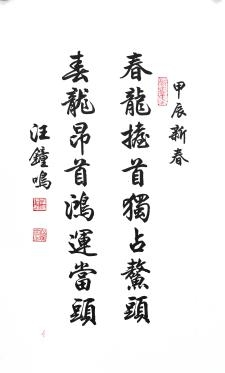 甲辰新春
春龍擡首獨占鰲頭
春龍昂首鴻運當頭
汪鐘鳴